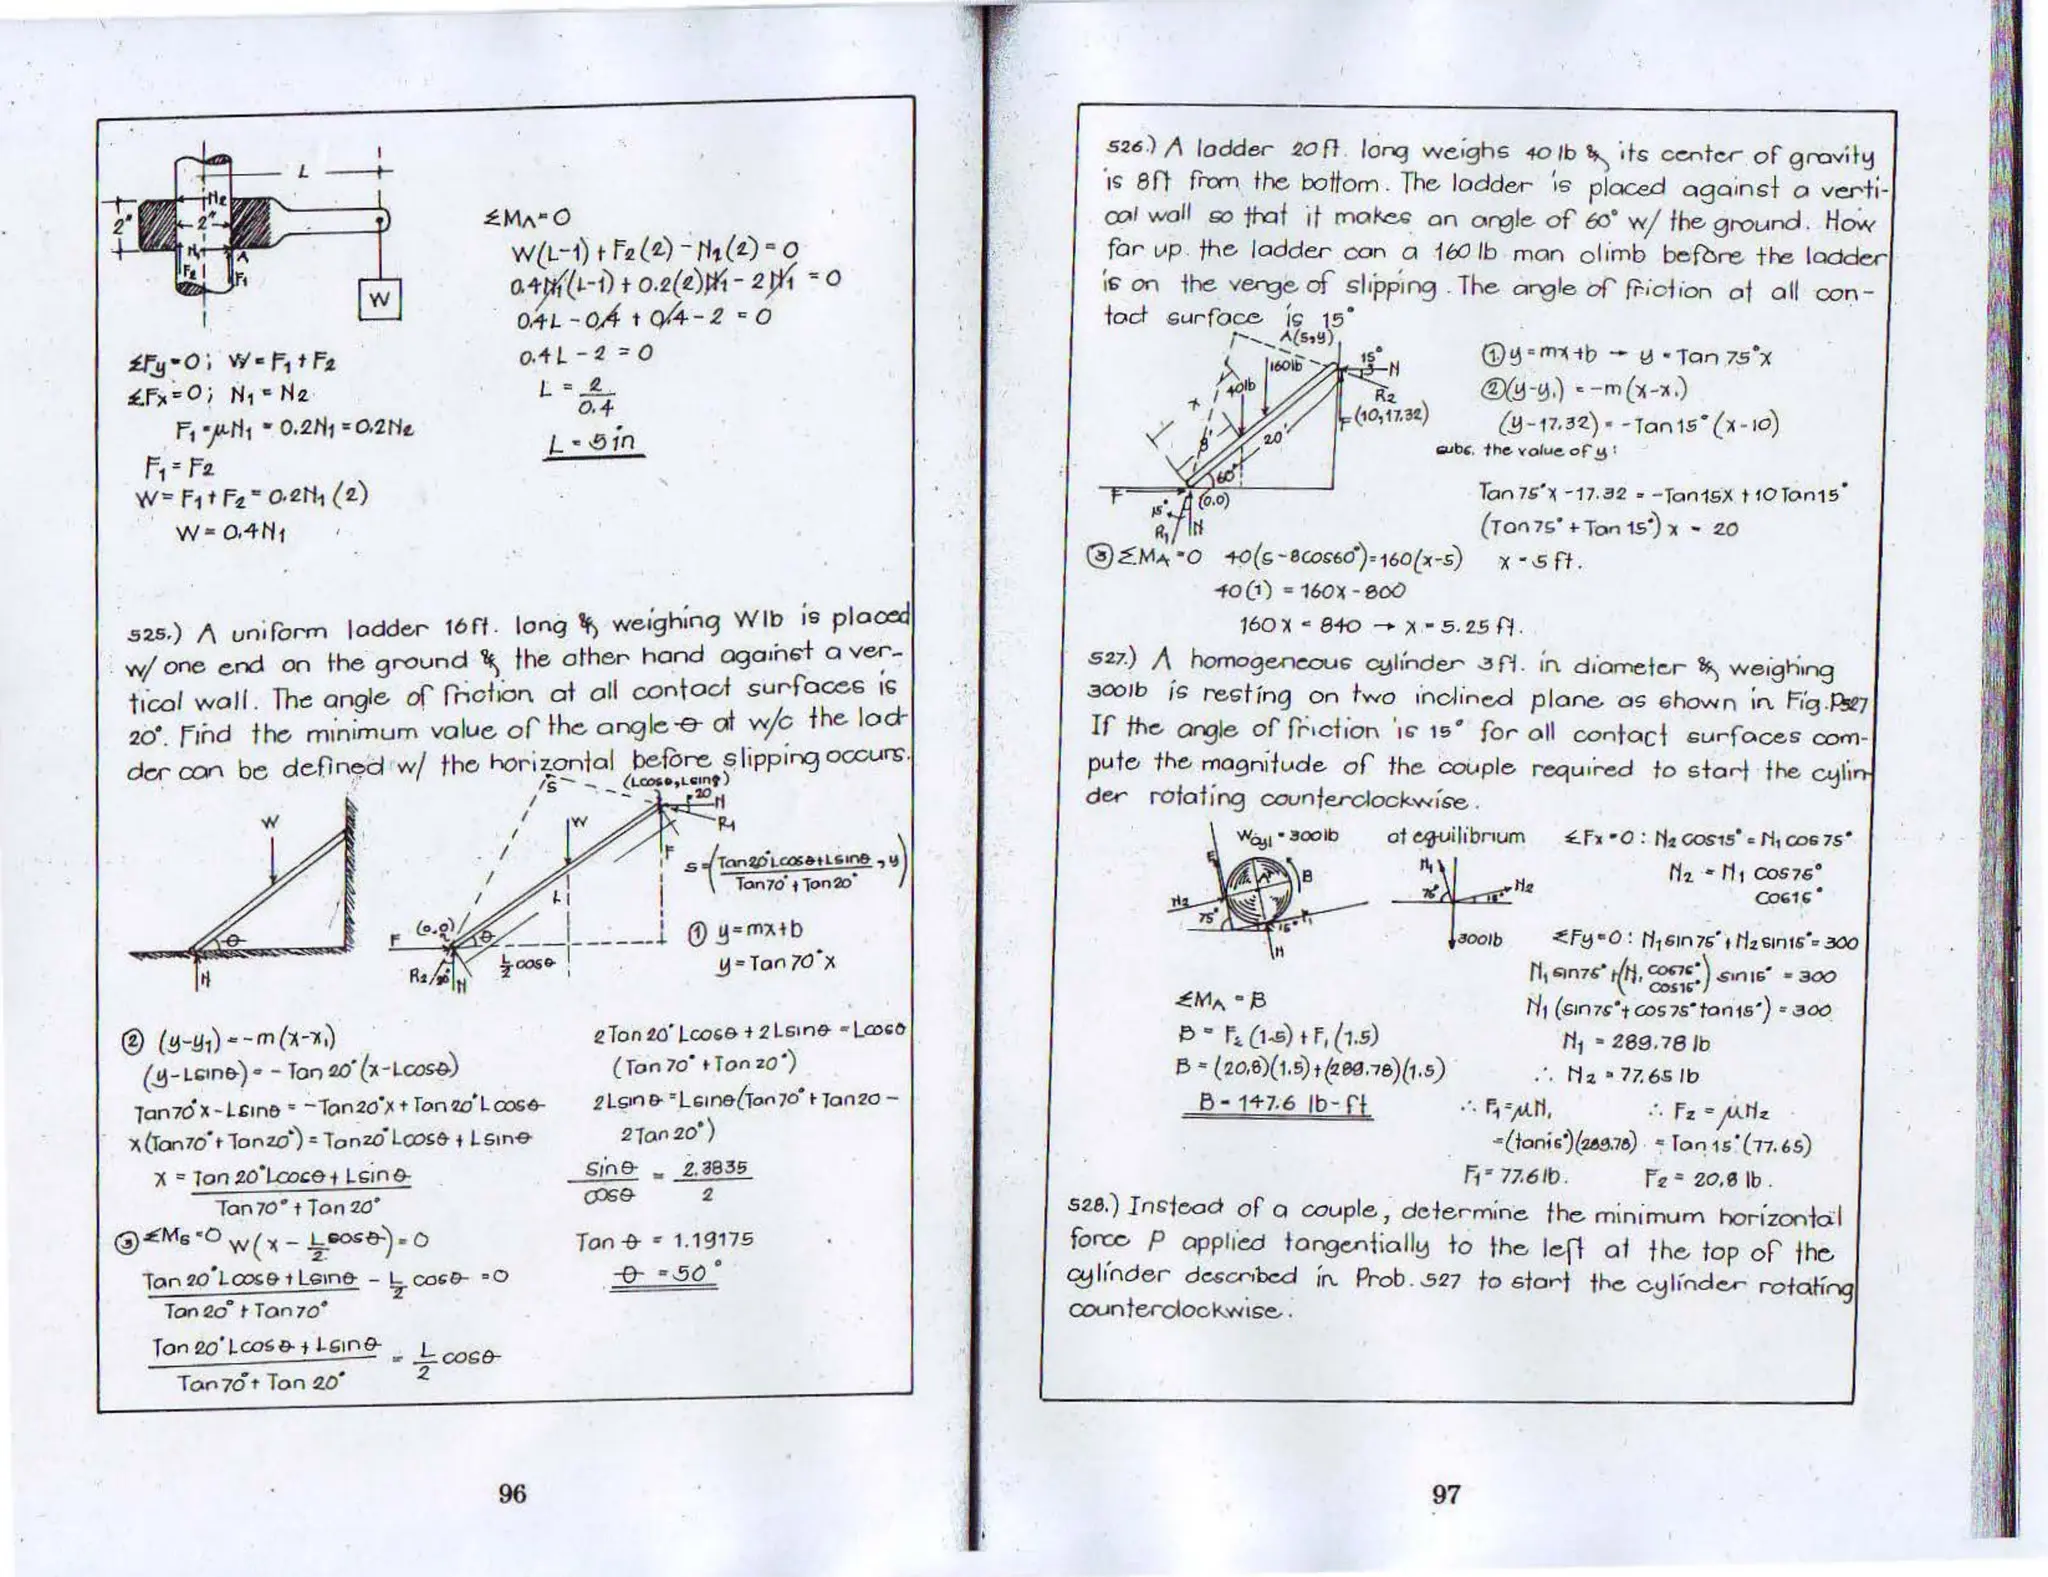 L
2"
N2
2"
N1
A
F2
F1
W
ΣFy=0; W=F1+F2
ΣFx=0; N1=N2
F1=μN1=0.2N1=0.2N2
F1=F2
W=F1+F2=0.2N1(2)
W=0.4N1
ΣMA=0
W(L-1)+F2(2)-N1(2)=0
0.4N1(L-1)+0.2(2)N1-2N1=0
0.4L-0.4+0.4-2=0
0.4L-2=0
L=2/0.4
L=5in
525.) A uniform ladder 16ft. long & weighing Wlb is placed
w/ one end on the ground & the other hand against a ver-
tical wall. The angle of friction at all contact surfaces is
20°. Find the minimum value of the angle θ at w/c the lad-
der can be defined w/ the horizontal before slipping occurs.
W
θ
N
S
(Lcosθ,Lsinθ)
20
N
R1
W
F
L
(0,0)
F
θ
L/2 cosθ
R2
20°
N
S=(Tan20°Lcosθ+Lsinθ/Tan70°+Tan20°, y)
① y=mx+b
y=Tan70°x
② (y-y1)=-m(x-x1)
(y-Lsinθ)=-Tan20°(x-Lcosθ)
Tan70°x-Lsinθ=-Tan20°x+Tan20°Lcosθ
x(Tan70°+Tan20°)=Tan20°Lcosθ+Lsinθ
x=Tan20°Lcosθ+Lsinθ
Tan70°+Tan20°
③ ΣMs=0 W(x-L/2 cosθ)=0
Tan20°Lcosθ+Lsinθ - L/2 cosθ=0
Tan20°+Tan70°
Tan20°Lcosθ+Lsinθ = L/2 cosθ
Tan70°+Tan20°
2Tan20°Lcosθ+2Lsinθ=Lcosθ
(Tan70°+Tan20°)
2Lsinθ=Lsinθ(Tan70°+Tan20-
2Tan20°)
sinθ/cosθ = 2.3835/2
Tanθ=1.19175
θ=50°
96
526.) A ladder 20ft. long weighs 40lb & its center of gravity
is 8ft from the bottom. The ladder is placed against a verti-
cal wall so that it makes an angle of 60° w/ the ground. How
far up the ladder can a 160 lb man olimb before the ladder
is on the verge of slipping. The angle of friction at all con-
tact surface is 15°
A(s,y)
160lb
15°
N
40lb
R2
x
F
(10,17.32)
8'
20'
60°
F
(0.0)
15°
R1
N
① y=mx+b → y=Tan75°x
②(y-y1)=-m(x-x1)
(y-17.32)=-Tan15°(x-10)
subs. the value of y:
Tan75°x-17.32=-Tan15x+10Tan15°
(Tan75°+Tan15°)x=20
x=5ft.
③ ΣMA=0 40(5-8cos60°)=160(x-5)
40(1)=160x-800
160x=840 → x=5.25ft.
527.) A homogeneous cylinder 3ft. in diameter & weighing
300lb is resting on two inclined plane as shown in Fig.P527
If the angle of friction is 15° for all contact surfaces com-
pute the magnitude of the couple required to start the cylin-
der rotating counterclockwise.
Wcyl=300lb
F
B
N2
75°
15°
F1
N
at equilibrium
N1
75°
N2
15°
300lb
ΣFx=0: N2cos15°=N1cos75°
N2=N1 cos75°
cos15°
ΣFy=0: N1sin75°+N2sin15°=300
N1sin75°+(N1 cos75°/cos15°)sin15°=300
N1(sin75°+cos75°tan15°)=300
N1=289.78lb
∴ N2=77.65lb
ΣMA=B
B=F2(1.5)+F1(1.5)
B=(20.8)(1.5)+(289.78)(1.5)
B=147.6 lb-ft
∴ F1=μN1
=(tan15°)(289.78)
F1=77.6lb.
∴ F2=μN2
=Tan15°(77.65)
F2=20.8lb.
528.) Instead of a couple, determine the minimum horizontal
force P applied tangentially to the left at the top of the
cylinder described in Prob. 527 to start the cylinder rotating
counterclockwise.
97